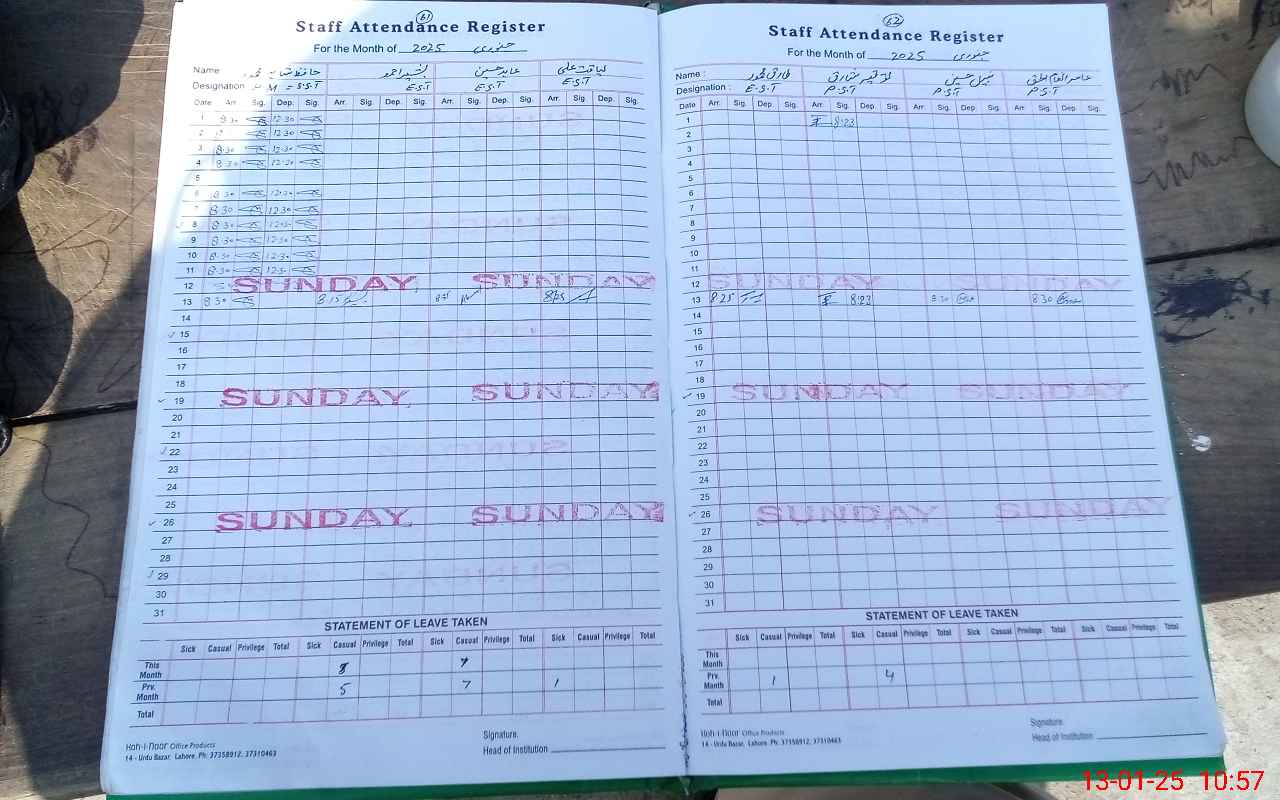 61
Staff Attendance Register
For the Month of 2025 جنوری
Name حافظ محمود بشیر احمد عابد حسین لیاقت علی
Designation H M = S.S.T E.S.T E.S.T E.S.T
Date Arr. Sig. Dep. Sig. Arr. Sig. Dep. Sig. Arr. Sig. Dep. Sig. Arr. Sig. Dep. Sig.
1 8 30 12.30
2 12.30
3 8.30 12.30
4 8 30 12.30
5
6 8 30 12.30
7 8 30 12 30
8 8 30 12.30
9 8 30 12.30
10 8.30 12.30
11 8 30 12.30
12 SUNDAY SUNDAY
13 8 30 8 15
14
15
16
17
18
19 SUNDAY SUNDAY
20
21
22
23
24
25
26 SUNDAY SUNDAY
27
28
29
30
31
STATEMENT OF LEAVE TAKEN
Sick Casual Privilege Total Sick Casual Privilege Total Sick Casual Privilege Total
This Month 8
Prv. Month 5 7 1
Total
Koh-i-Noor Office Products
14 - Urdu Bazar, Lahore. Ph: 37358912, 37310463
Signature.
Head of Institution
62
Staff Attendance Register
For the Month of 2025 جنوری
Name : طارق محمود
Designation : E.S.T P.S.T P.S.T P.S.T
Date Arr. Sig. Dep. Sig. Arr. Sig. Dep. Sig. Arr. Sig. Dep. Sig. Arr. Sig. Dep. Sig.
1 8:23
2
3
4
5
6
7
8
9
10
11
12 SUNDAY SUNDAY
13 8 25 8:23 8:30 8 30
14
15
16
17
18
19 SUNDAY SUNDAY
20
21
22
23
24
25
26 SUNDAY SUNDAY
27
28
29
30
31
STATEMENT OF LEAVE TAKEN
Sick Casual Privilege Total Sick Casual Privilege Total Sick Casual Privilege Total Sick Casual Privilege Total
This Month
Prv. Month 1 4
Total
Koh-i-Noor Office Products
14 - Urdu Bazar, Lahore. Ph: 37358912, 37310463
Signature.
Head of Institution
13-01-25 10:57